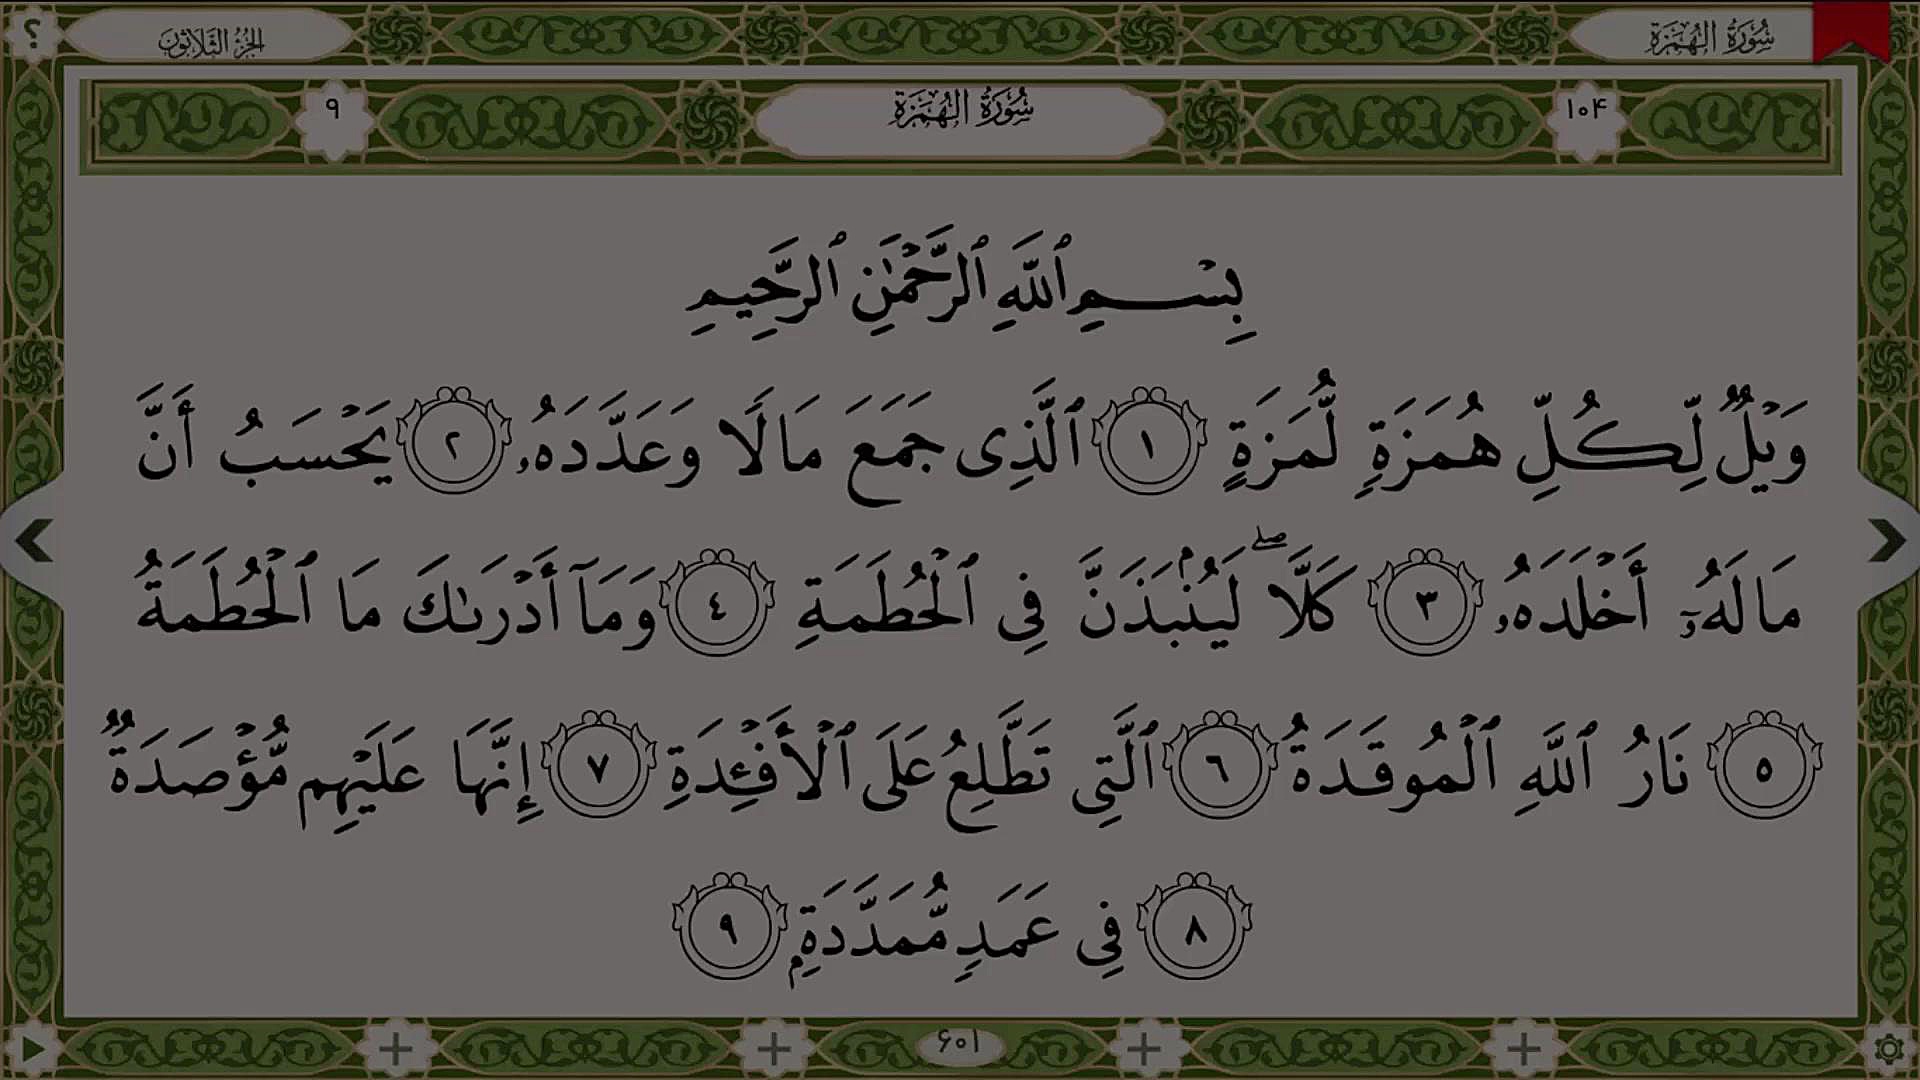 سُورَةُ الهُمَزَةِ
الجُزءُ الثَّلَاثُونَ
؟
۱۰۴
سُورَةُ الهُمَزَةِ
۹
بِسْمِ ٱللَّهِ ٱلرَّحْمَٰنِ ٱلرَّحِيمِ
وَيْلٌ لِّكُلِّ هُمَزَةٍ لُّمَزَةٍ ١ ٱلَّذِى جَمَعَ مَالًا وَعَدَّدَهُۥ ٢ يَحْسَبُ أَنَّ
مَالَهُۥٓ أَخْلَدَهُۥ ٣ كَلَّا ۖ لَيُنۢبَذَنَّ فِى ٱلْحُطَمَةِ ٤ وَمَآ أَدْرَىٰكَ مَا ٱلْحُطَمَةُ
٥ نَارُ ٱللَّهِ ٱلْمُوقَدَةُ ٦ ٱلَّتِى تَطَّلِعُ عَلَى ٱلْأَفْـِٔدَةِ ٧ إِنَّهَا عَلَيْهِم مُّؤْصَدَةٌ
٨ فِى عَمَدٍ مُّمَدَّدَةٍۭ ٩
۶۰۱